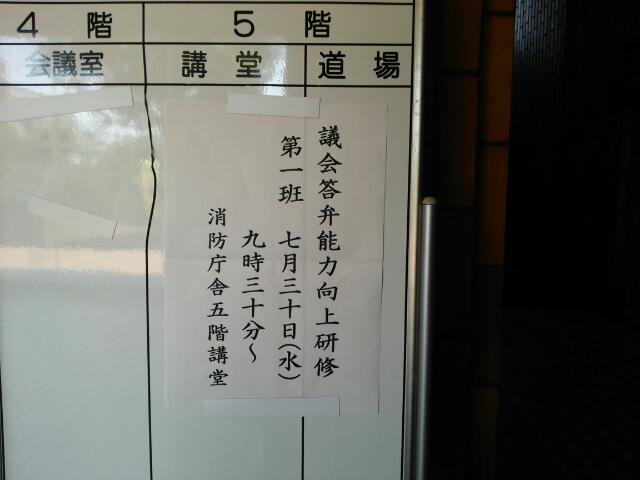 4階
5階
会議室
講堂
道場
議会答弁能力向上研修
第一班 七月三十日(水)
九時三十分~
消防庁舎五階講堂